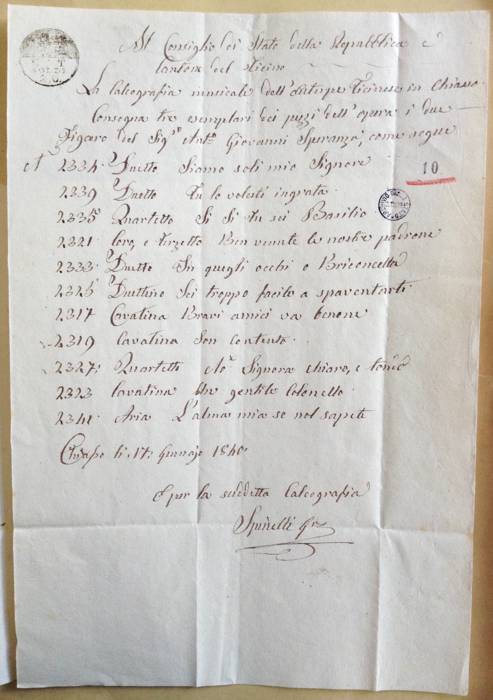 Al Consiglio di Stato della Repubblica e
Cantone del Ticino
La Calcografia musicale dell'Euterpe Ticinese in Chiasso
Consegna tre esemplari dei pezzi dell'opera i due
Figaro del Sig.r Ant.o Giovanni Speranza, come segue
N 2334. Duetto Siamo soli mio Signore
10
2339 Duetto Tu lo volesti ingrata
2335 Quartetto Si Si tu sei Basilio
2321 Coro, e Terzetto Ben venute le nostre padrone
2333. Duetto In quegli occhi o Briconcella
2325 Duettino Sei troppo facile a spaventarti
2317 Cavatina Bravi amici va benone
2319 Cavatina Son contento
2327: Quartetto No Signora chiaro, e tondo
2323 Cavatina Un gentile Colonello
2341 Aria L'alma mia se nol sapete
Chiasso li 17. Gennajo 1840.
E per la suddetta Calcografia
Spinelli